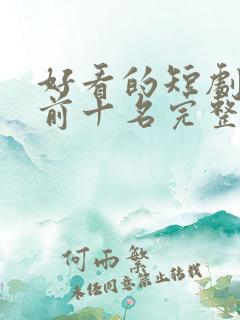 好看的短劇
前十名完整
何雨繁
未经同意禁止转载